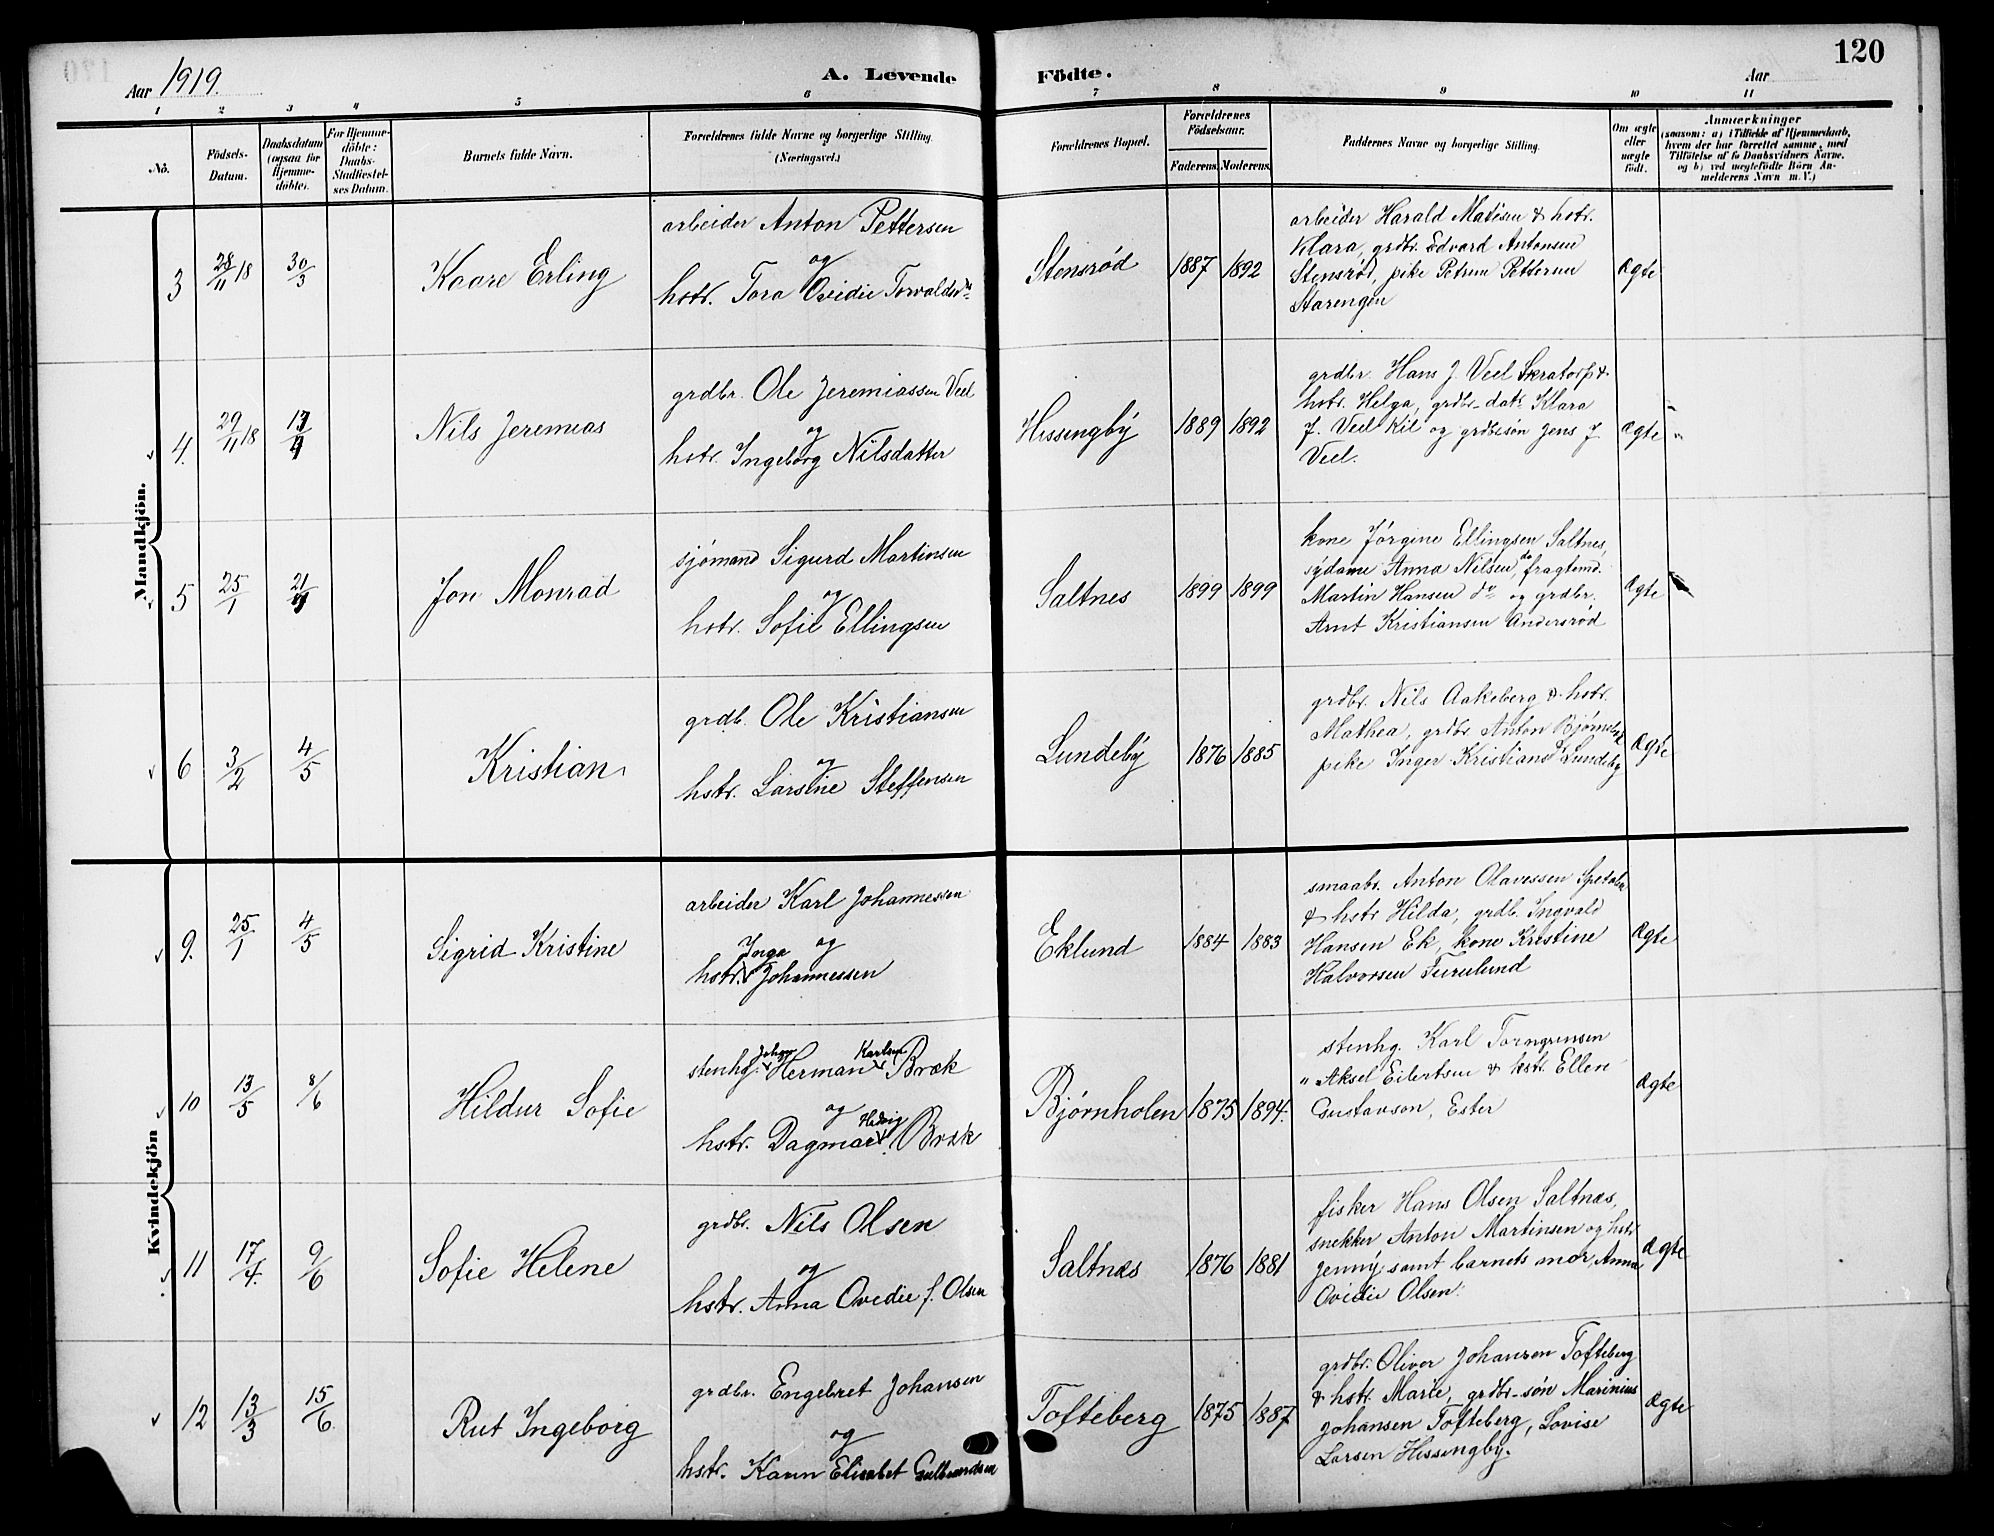 120
Aar 1919.
A. Levende Födte.
Aar
1 2 3 4 5 6 7 8 9 10 11
No.
Födsels-Datum.
Daabsdatum (ogsaa for Hjemme-döbte).
For Hjemme-döbte: Daabs-Stadfæstel-ses Datum.
Barnets fulde Navn.
Forældrenes fulde Navne og borgerlige Stilling. (Næringsvei.)
Forældrenes Bopæl.
Forældrenes Födselsaar.
Faderens. Moderens.
Faddernes Navne og borgerlige Stilling.
Om ægte eller uægte födt.
Anmærkninger
(saasom: a) i Tilfælde af Hjemmedaab,
hvem der har forrettet samme, med
Tilföielse af to Daabsvidners Navne.
og b) ved uægtefödte Börn An-
melderens Navn m. V.)
Mandkjön.
3 28/11 18 30/3 Kaare Erling
arbeider Anton Pettersen
og
hstr. Tora Ovidie Torvaldsdr
Stensrød 1887 1892
arbeider Harald Matisen & hstr.
Klara, grdbr. Edvard Antonsen
Stensrød, pike Petrun Pettersen
Starengen
Ægte
4. 29/11 18 Nils Jeremias
grdbr. Ole Jeremiassen Veel
og
hstr. Ingeborg Nilsdatter
Hissingby 1889 1892
grdbr. Hans J. Veel Skratorp &
hstr. Helga, grdbr-datr Klara
J. Veel Kil og grdbrsøn Jens J.
Veel.
Ægte "
5 25/1 21/4 Jon Monrad
sjømand Sigurd Martinsen
og
hstr. Sofie Ellingsen
Saltnes 1899 1899
kone Jørgine Ellingsen Saltnes,
sydame Anna Nilsen do, fragtmd.
Martin Hansen do og grdbr.
Arnt Kristiansen Andersrød
Ægte
6 3/2 4/5 Kristian
grdb. Ole Kristiansen
og
hstr. Larsine Steffensen
Lundeby 1876 1885
grdbr. Nils Aakeberg & hstr.
Mathea, grdbr Anton
pike Inger Kristians Lundeby
Ægte
Kvindekjön
9. 25/1 4/5 Sigrid Kristine
arbeider Karl Johannessen
og
hstr. Inga Johannessen
Eklund 1884 1883
smaabr. Anton Olavessen
& hstr Hilda, grdb. Ingvald
Hansen Ek, kone Kristine
Halvorsen Furulund
Ægte
10 13/5 8/6 Hildur Sofie
stenhg. Johan Herman Karlsen Bræk
og
hstr. Dagmar Hedvig Bræk
Bjørnholen 1875 1894.
stenhg. Karl Torngrensen
" Aksel Eilertsen & hstr. Ellen
Gustavson, Ester
Ægte
11 17/4. 9/6 Sofie Helene
grdbr. Nils Olsen
og
hstr. Anna Ovedie f. Olsen
Saltnæs 1876 1881
fisker Hans Olsen Saltnæs,
snekker Anton Martinsen og hstr
Jenny, samt barnets mor, Anna
Ovidie Olsen.
Ægte
12 13/3 15/6 Rut Ingeborg
grdbr. Engebret Johansen
og
hstr. Karin Elisabet Gulbrandsen
Tofteberg 1875 1887
grdbr. Oliver Johansen Tofteberg
& hstr. Marie, grdbr-søn Marinius
Johansen Tofteberg, Lovise
Larsen Hissingby.
Ægte